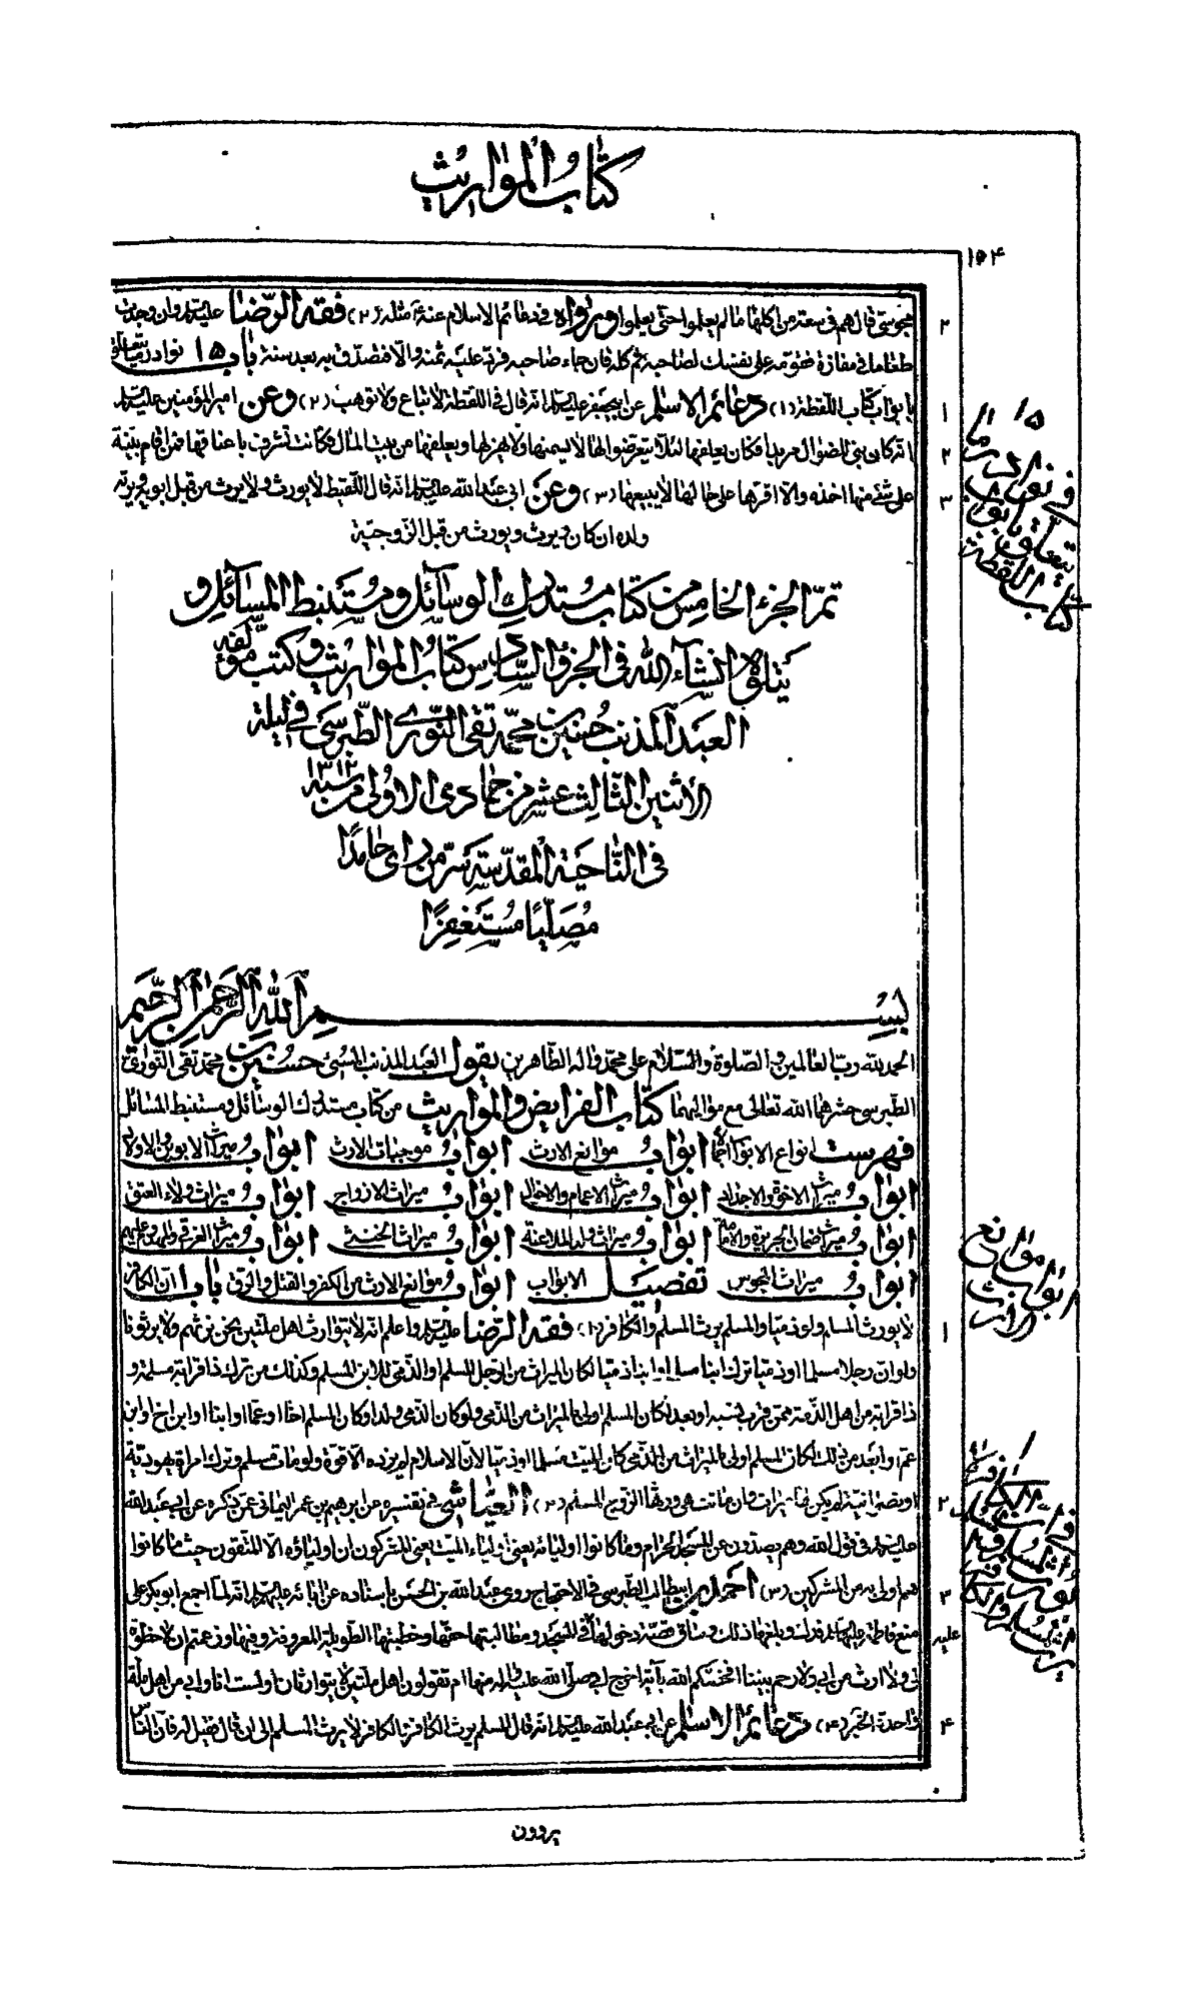 كتاب المواريث
١٥٤
مجوسي قال هم في سعة من اكلها ما لم يعلموا حتى يعلموا ورواه في دعائم الاسلام عنه مثله (٢) فقه الرضا عليه السلام وان وجدت
طعاما في مفازة فقومه على نفسك لصاحبه ثم كله فان جاء صاحبه فرد عليه ثمنه والا فتصدق به بعد سنة باب ١٥ نوادر ما يتعلق
بابواب كتاب اللقطة (١) دعائم الاسلام عن ابيجعفر عليه السلام انه قال في اللقطة لا تباع ولا توهب (٢) وعن امير المؤمنين عليه السلام
انه كان بنى للضوال مربدا فكان يعلفها لا يسمنها ولا يهزلها ويعلفها من بيت المال فكانت تشرف باعناقها فمن اقام بينة
على شئ منها اخذه والا اقرها على حالها لا يبيعها (٣) وعن ابي عبد الله عليه السلام انه قال اللقيط لا يورث ولا يرث من قبل ابويه ويرثه
ولده ان كان ويرث ويورث من قبل الزوجية
في نوادر ما يتعلق بابواب كتاب اللقطة
تم الجزء الخامس من كتاب مستدرك الوسائل ومستنبط المسائل و
يتلوه انشاء الله في الجزء السادس كتاب المواريث وكتب مؤلفه
العبد المذنب حسين بن محمد تقي النوري الطبرسي في ليلة
الاثنين الثالث عشر من جمادى الاولى من سنة ١٣١٢
في الناحية المقدسة سر من راى حامدا
مصليا مستغفرا
بسم الله الرحمن الرحيم
الحمد لله رب العالمين والصلوة والسلام على محمد واله الطاهرين يقول العبد المذنب المسئ حسين بن محمد تقي النوري
الطبرسي حشرهما الله تعالى مع مواليهما كتاب الفرايض والمواريث من كتاب مستدرك الوسائل ومستنبط المسائل
فهرست انواع الابواب اجمالا ابواب موانع الارث ابواب موجبات الارث ابواب ميراث الابوين والاولاد
ابواب ميراث الاخوة والاجداد ابواب ميراث الاعمام والاخوال ابواب ميراث الازواج ابواب ميراث ولاء العتق
ابواب ميراث ضمان الجريرة والامامة ابواب ميراث ولد الملاعنة ابواب ميراث الخنثى ابواب ميراث الغرقى والمهدوم عليهم
ابواب ميراث المجوس تفصيل الابواب ابواب موانع الارث من الكفر والقتل والرق باب ١ ان الكافر
لا يورث المسلم ولو ذميا والمسلم يرث المسلم والكافر (١) فقه الرضا عليه السلام واعلم انه لا يتوارث اهل ملتين نحن نرثهم ولا يرثونا
ولو ان رجلا مسلما او ذميا ترك ابنا مسلما وابنا ذميا لكان الميراث من الرجل المسلم او الذمي للابن المسلم وكذلك من ترك ذا قرابة مسلمة و
ذا قرابة من اهل الذمة ممن قرب نسبه او بعد لكان المسلم اولى بالميراث من الذمي ولو كان الذمي ولدا وكان المسلم اخا او عما او ابن اخ او ابن
عم او ابعد من ذلك لكان المسلم اولى بالميراث من الذمي كان الميت مسلما او ذميا لان الاسلام لم يزده الا قوة ولو مات مسلم وترك امراة يهودية
او نصرانية لم يكن لها ميراث وان ماتت هي ورثها الزوج المسلم (٢) العياشي في تفسيره عن ابرهيم بن عمر اليماني عمن ذكره عن ابي عبد الله
عليه السلام في قول الله وهم يصدون عن المسجد الحرام وما كانوا اوليائه يعني اولياء البيت يعني المشركون ان اولياؤه الا المتقون حيث ما كانوا
هم اولى به من المشركين (٣) احمد بن ابيطالب الطبرسي في الاحتجاج روى عبد الله بن الحسن باسناده عن ابائه عليهم السلام انه لما اجمع ابو بكر على
منع فاطمة عليها السلام فدك وبلغها ذلك وساق قصة دخولها في المسجد ومطالبتها حقها وخطبتها الطويلة المعروفة وفيها وزعمتم ان لا حظوة
لي ولا ارث من ابي ولا رحم بيننا افخصكم الله بآية اخرج ابي صلى الله عليه واله منها ام تقولون اهل ملتين لا يتوارثان اولست انا وابي من اهل ملة
واحدة الخبر (٤) دعائم الاسلام عن ابي عبد الله عليه السلام انه قال المسلم يرث الكافر والكافر لا يرث المسلم الى ان قال فقيل له فان الناس
ابواب موانع الارث
يروون